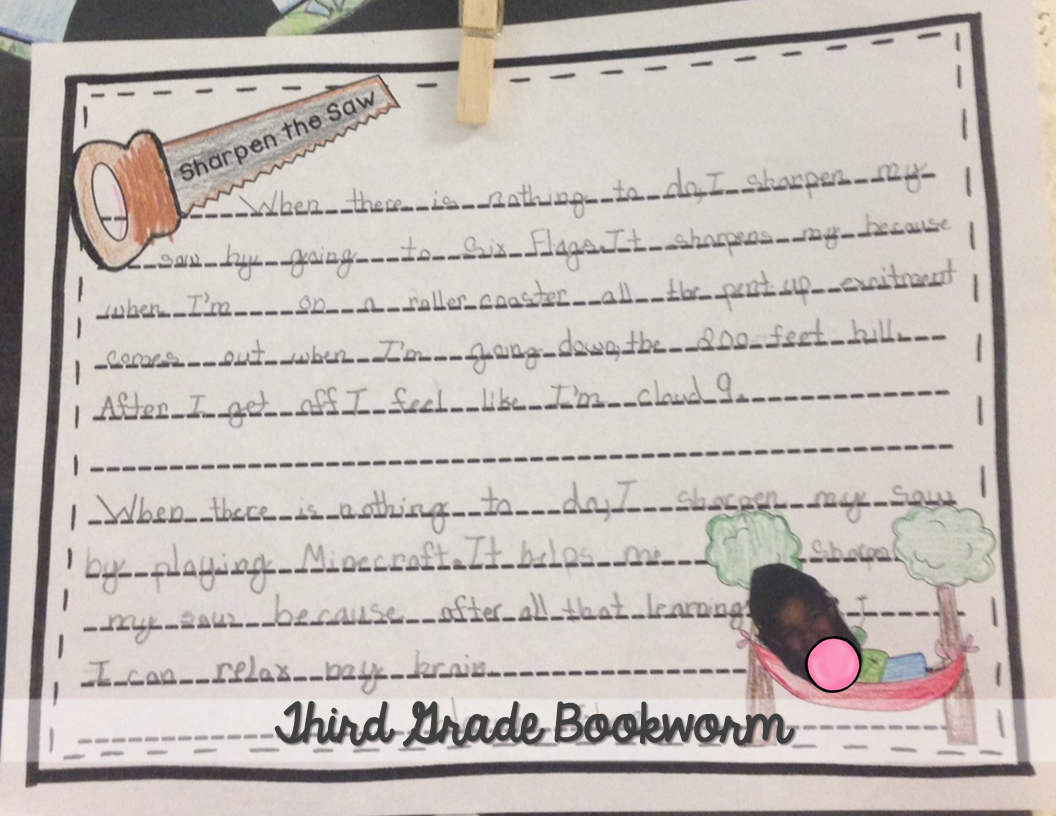 Sharpen the Saw
When there is nothing to do, I sharpen my
saw by going to Six Flags. It sharpens my because
when I'm on a roller coaster all the pent up excitment
comes out when I'm going down, the 200 feet hill.
After I get off I feel like I'm cloud 9.
When there is nothing to do, I sharpen my saw
by playing Minecraft. It helps me sharpen
my saw because after all that learning, I
I can relax my brain.
Third Grade Bookworm